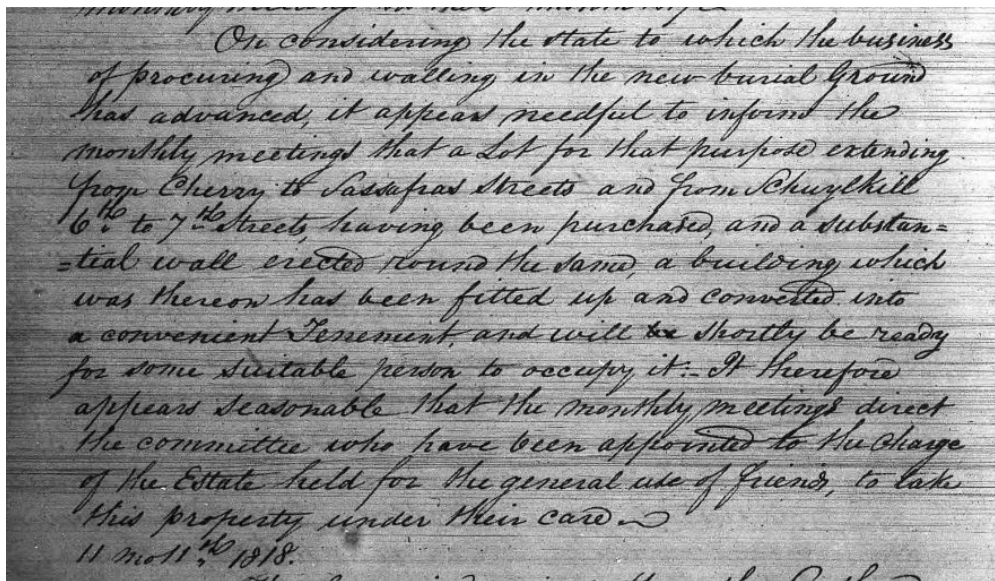 On considering the state to which the business
of procuring and walling in the new burial Ground
has advanced, it appears needful to inform the
monthly meetings that a Lot for that purpose extending
from Cherry to Sassafras Streets and from Schuylkill
6th. to 7th Streets, having been purchased, and a substan=
=tial wall erected round the same, a building which
was thereon has been fitted up and converted into
a convenient Tenement, and will be shortly be ready
for some suitable person to occupy it:- It therefore
appears seasonable that the monthly meetings direct
the committee who have been appointed to the charge
of the Estate held for the general use of friends, to take
this property under their care.
11 mo 11th. 1818.